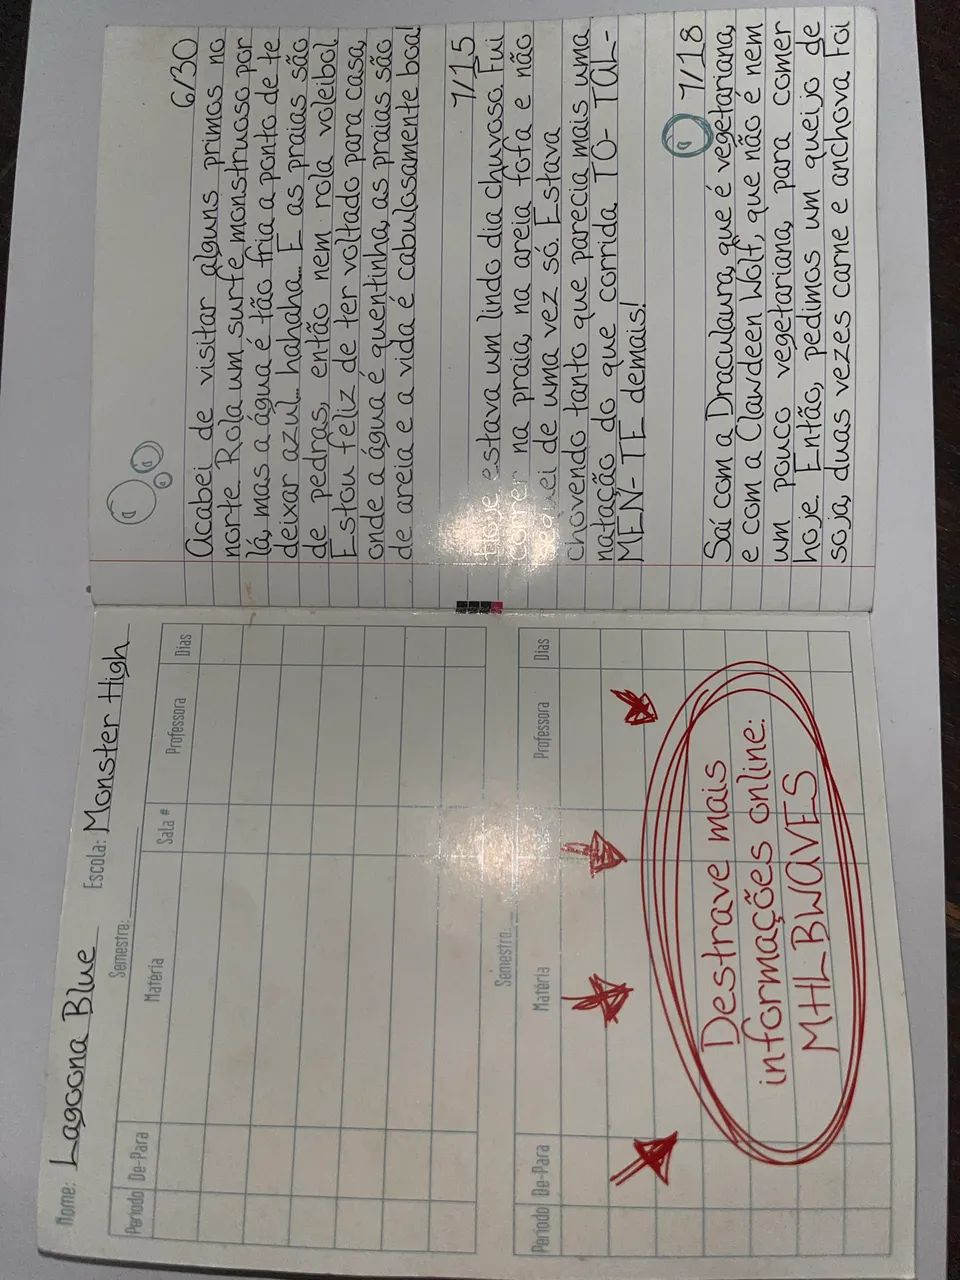 Nome: Lagoona Blue Escola: Monster High
Semestre:
Período De-Para Matéria Sala # Professora Dias
Semestre:
Período De-Para Matéria Professora Dias
Destrave mais
informações online:
MHLBWAVES
6/30
Acabei de visitar alguns primos no
norte. Rola um surfe monstruoso por
lá, mas a água é tão fria a ponto de te
deixar azul... hahaha... E as praias são
de pedras, então nem rola voleibol.
Estou feliz de ter voltado para casa,
onde a água é quentinha, as praias são
de areia e a vida é cabulosamente boa!
7/15
Hoje estava um lindo dia chuvoso. Fui
correr na praia, na areia fofa e não
sequei de uma vez só. Estava
chovendo tanto que parecia mais uma
natação do que corrida. TO- TAL-
MEN- TE demais!
7/18
Saí com a Draculaura, que é vegetariana,
e com a Clawdeen Wolf, que não é nem
um pouco vegetariana, para comer
hoje. Então, pedimos um queijo de
soja, duas vezes carne e anchova. Foi